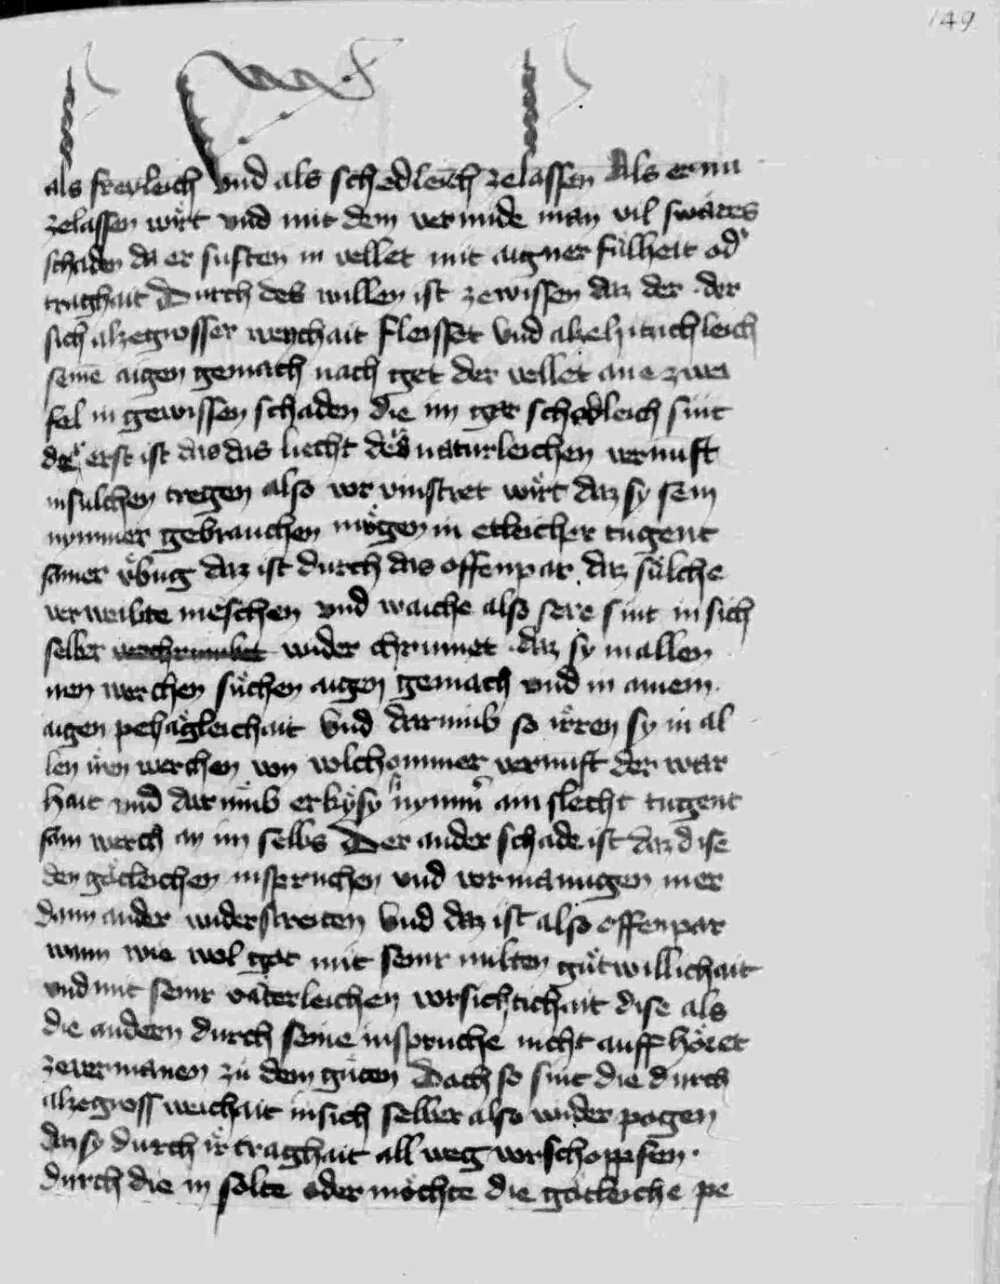 149
als freyleich vnd als schedleich zelassen Als er nu
zelassen wirt vnd mit dem vermide man vil swäres
schaden da er susten in vellet mit aigner fulheit od
traghait Durch des willen ist zewissen daz der der
sich alzegrosser weychait fleisset vnd alzehitzichleich
seinē aigen gemach nach get der vellet ane zwei
fel in gewissen schaden die im gar schedleich sint
der erst ist das das liecht des naturleichen vernuft
in sulchen tregen also vor vinstret wirt daz sy sein
nymmer gebrauchen mögen in etleicher tugent
samer vbūg daz ist durch das offenpar daz sulche
verweibte meschen vnd waiche also sere sint in sich
selber wider chrummet daz sy in allen
iren werchen suchen aigen gemach vnd in ainem
aigen pehägleichait vnd darumb so irren sy in al
len iren werchen von volchommer vernuft der war
hait vnd darumb sy nymm ain slecht tugent
sam werch an im selbs Der ander schade ist daz dise
den götleichen inspruchen vnd vormanungen mer
dann ander widerstreiten vnd daz ist also offenpar
wann wie wol got mit seinr milten gutwillichait
vnd mit seinr väterleichen vorsichtichait dise als
die andern durch seine inspruche nicht auffhöret
zevermanen zu dem guten Doch so sint die durch
alzegross weichait in sich selber also wider pogen
daz sy durch ir traghait all weg vorschoppfen
durch die in solte oder möchte die götleiche pe